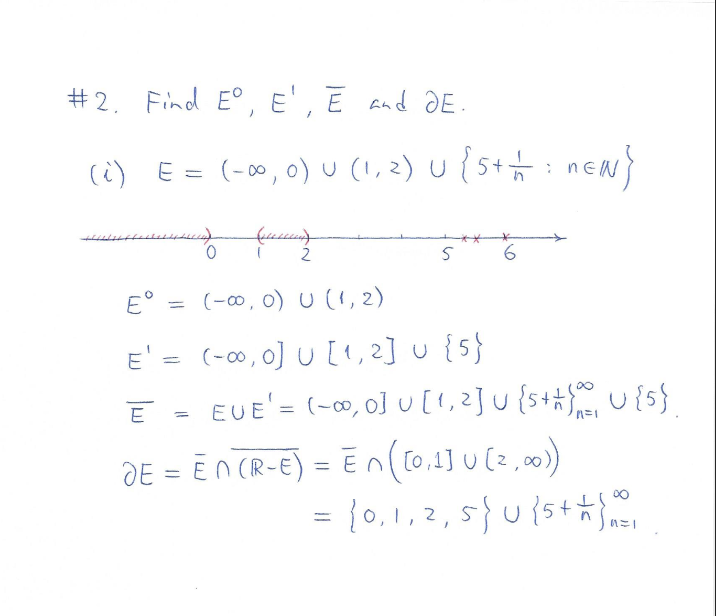 #2. Find E°, E', Ē and ∂E.
(i) E = (-∞, 0) ∪ (1, 2) ∪ {5+1/n : n∈ℕ}
0 1 2 5 6
E° = (-∞, 0) ∪ (1, 2)
E' = (-∞, 0] ∪ [1, 2] ∪ {5}
Ē = E∪E' = (-∞, 0] ∪ [1, 2] ∪ {5+1/n}_{n=1}^{∞} ∪ {5}.
∂E = Ē ∩ \overline{(ℝ-E)} = Ē ∩ ([0,1] ∪ [2, ∞))
= {0, 1, 2, 5} ∪ {5+1/n}_{n=1}^{∞}.